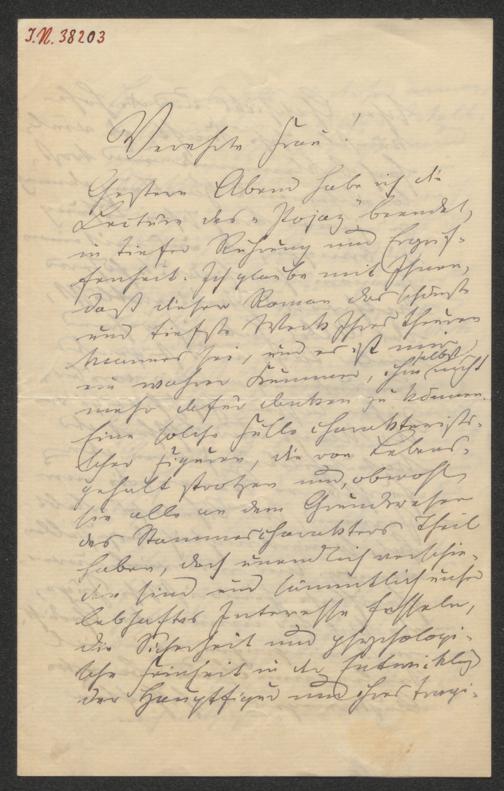 I.N. 38203
Verehrte Frau!
Gestern Abend habe ich die
Lectüre des „Pojaz" beendet,
in tiefer Rührung und Ergrif-
fenheit. Ich glaube mit Ihnen,
daß dieser Roman das schönste
und tiefste Werk Ihres theuren
Mannes sei, und es ist mir
ein wahrer Kummer, ihm selbst nicht
mehr dafür danken zu können.
Eine solche Fülle charakteristi-
scher Figuren, die von Lebens-
gehalt strotzen und, obwohl
sie alle an dem Grundwesen
des Stammescharakters Theil
haben, doch unendlich verschie-
den sind und sämmtlich unser
lebhaftes Interesse fesseln,
die Sicherheit und psychologi-
sche Feinheit in der Entwicklung
der Hauptfigur und ihres tragi-